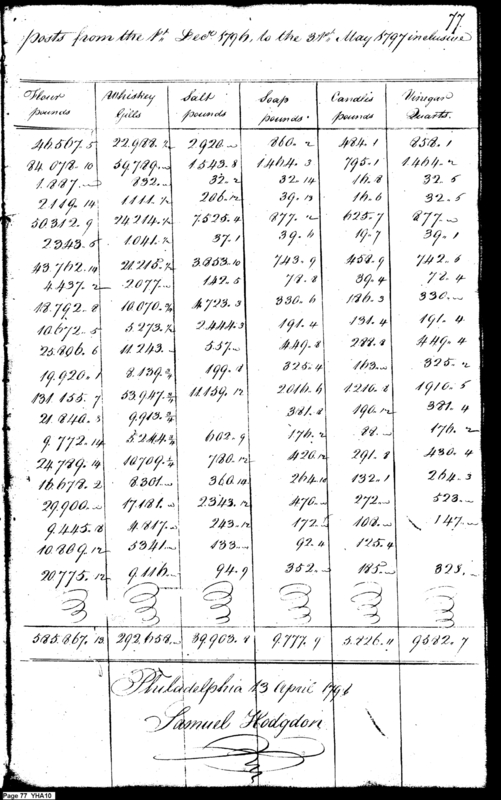 77
posts from the 1st Decr 1796, to the 31st May 1797 inclusive
Flour pounds Whiskey Gills Salt pounds Soap pounds Candles pounds Vinegar Quarts
46567.5 22988.½ 2920 860.2 484.1 858.1
84078.10 59789 1543.8 1464.3 795.1 1464.2
1.887 832 32.2 32.14 16.8 32.5
2119.14 1111.½ 206.12 39.13 16.6 32.5
50312.9 24214.½ 7525.4 877.2 625.7 877
2343.5 1041.½ 37.1 39.6 19.7 39.1
43762.14 21215.½ 3853.10 743.9 458.9 742.5
4437.2 2077 142.5 78.8 39.4 78.4
18792.8 10070.¾ 4723.3 330.6 186.3 330
10672.5 5273.½ 2444.3 191.4 131.4 191.4
25806.6 11243 557 449.8 288.8 449.4
19920.1 8139.¾ 199.8 325.4 163 325.2
131155.7 53947.¾ 11159.12 2016.6 1216.8 1910.5
21840.5 9913.¾ 381.8 190.12 381.4
9772.14 5244.¾ 602.9 176.2 88 176.2
24789.14 10709.¼ 780.12 420.12 291.8 430.4
16678.2 8301 360.10 264.10 132.1 264.3
29900 17181 2343.12 470 272 523
9445.8 4817 243.12 172 108 147
10869.12 5341 133 92.4 125.4
20775.12 9116 94.9 352 185 328
585.867.13 292658 39.903.8 9.777.9 5.826.11 9582.7
Philadelphia 13 April 1796
Samuel Hodgdon
Page 77 YHA10